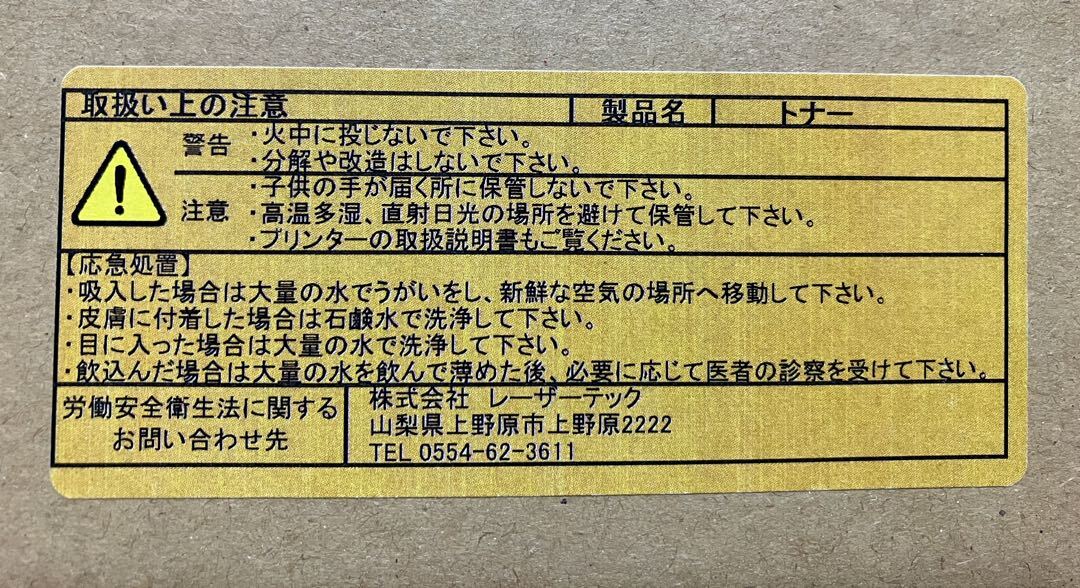 取扱い上の注意 製品名 トナー
警告 ・火中に投じないで下さい。
・分解や改造はしないで下さい。
・子供の手が届く所に保管しないで下さい。
注意 ・高温多湿、直射日光の場所を避けて保管して下さい。
・プリンターの取扱説明書もご覧ください。
【応急処置】
・吸入した場合は大量の水でうがいをし、新鮮な空気の場所へ移動して下さい。
・皮膚に付着した場合は石鹸水で洗浄して下さい。
・目に入った場合は大量の水で洗浄して下さい。
・飲込んだ場合は大量の水を飲んで薄めた後、必要に応じて医者の診察を受けて下さい。
労働安全衛生法に関する
お問い合わせ先
株式会社 レーザーテック
山梨県上野原市上野原2222
TEL 0554-62-3611